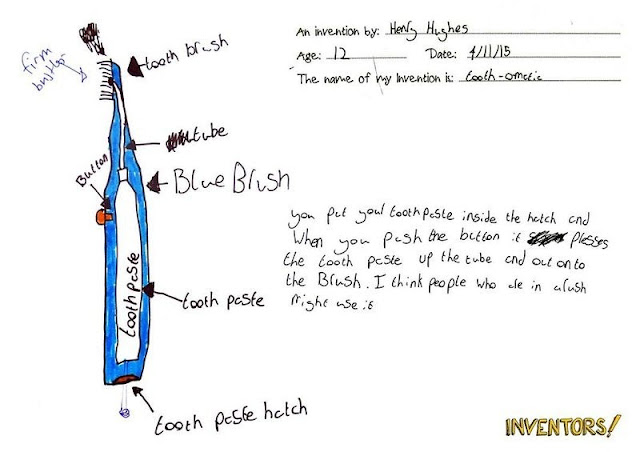 An invention by: Henry Hughes
Age: 12 Date: 4/11/15
The name of my invention is: tooth-omatic
firm
tooth brush
tube
Button
Blue Brush
you put your toothpaste inside the hatch and
When you push the button it presses
the tooth paste up the tube and out onto
the Brush. I think people who are in a rush
might use it
toothpaste
tooth paste
tooth paste hatch
INVENTORS!